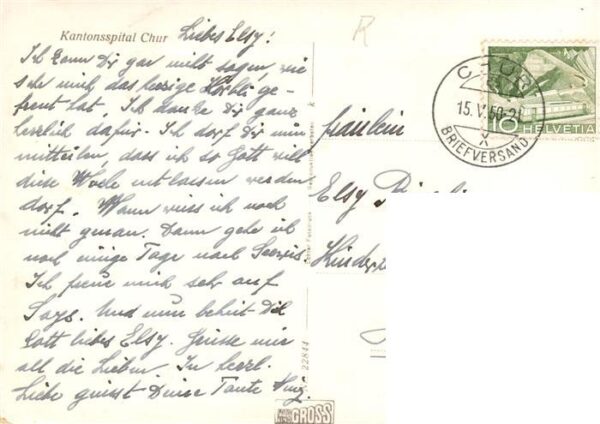 Kantonsspital Chur Liebes Elsy!
Ich kann Dir gar nicht sagen, wie
sehr mich das herzige Körbli ge-
freut hat. Ich danke Dir ganz
herzlich dafür. Ich darf Dir nun
mitteilen, dass ich so Gott will
diese Woche entlassen werden
darf. Wann weiss ich noch
nicht genau. Dann gehe ich
noch einige Tage nach Seewis.
Ich freue mich sehr auf
Says. Und nun behüt Dich
Gott liebes Elsy. Grüsse mir
all die Lieben. In herzl.
Liebe grüsst Deine Tante
R
CHUR
15.V.50-
X
BRIEFVERSAND
10 HELVETIA
Fräulein
Elsy
Kinder
22844
GROSS